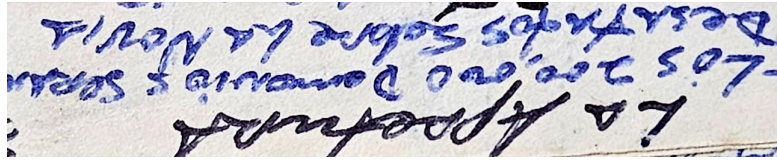 La Apretura
-Los 200,000 Demonios seran
Desatados sobre La Novia